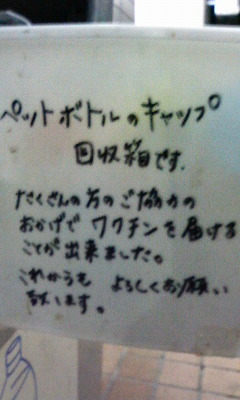 ペットボトルのキャップ
回収箱です.
たくさんの方のご協力の
おかげで ワクチンを届ける
ことが出来ました。
これからも よろしくお願い
致します。